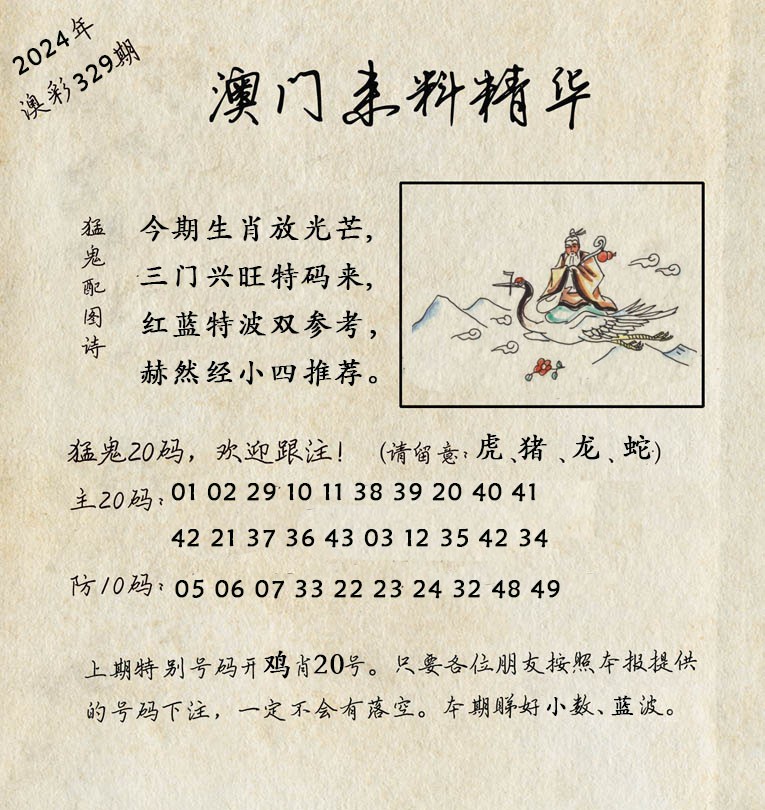 2024年
澳彩329期
澳门来料精华
猛鬼配图诗
今期生肖放光芒,
三门兴旺特码来,
红蓝特波双参考,
赫然经小四推荐。
猛鬼20码,欢迎跟注! (请留意:虎、猪、龙、蛇)
主20码: 01 02 29 10 11 38 39 20 40 41
42 21 37 36 43 03 12 35 42 34
防10码: 05 06 07 33 22 23 24 32 48 49
上期特别号码开鸡肖20号。只要各位朋友按照本报提供
的号码下注,一定不会有落空。本期睇好小数、蓝波。